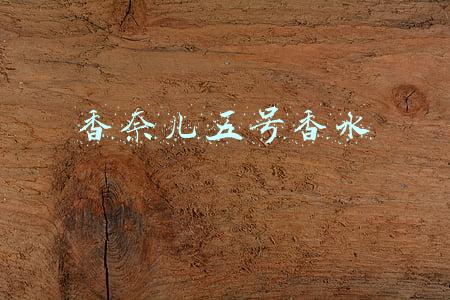 香奈儿五号香水